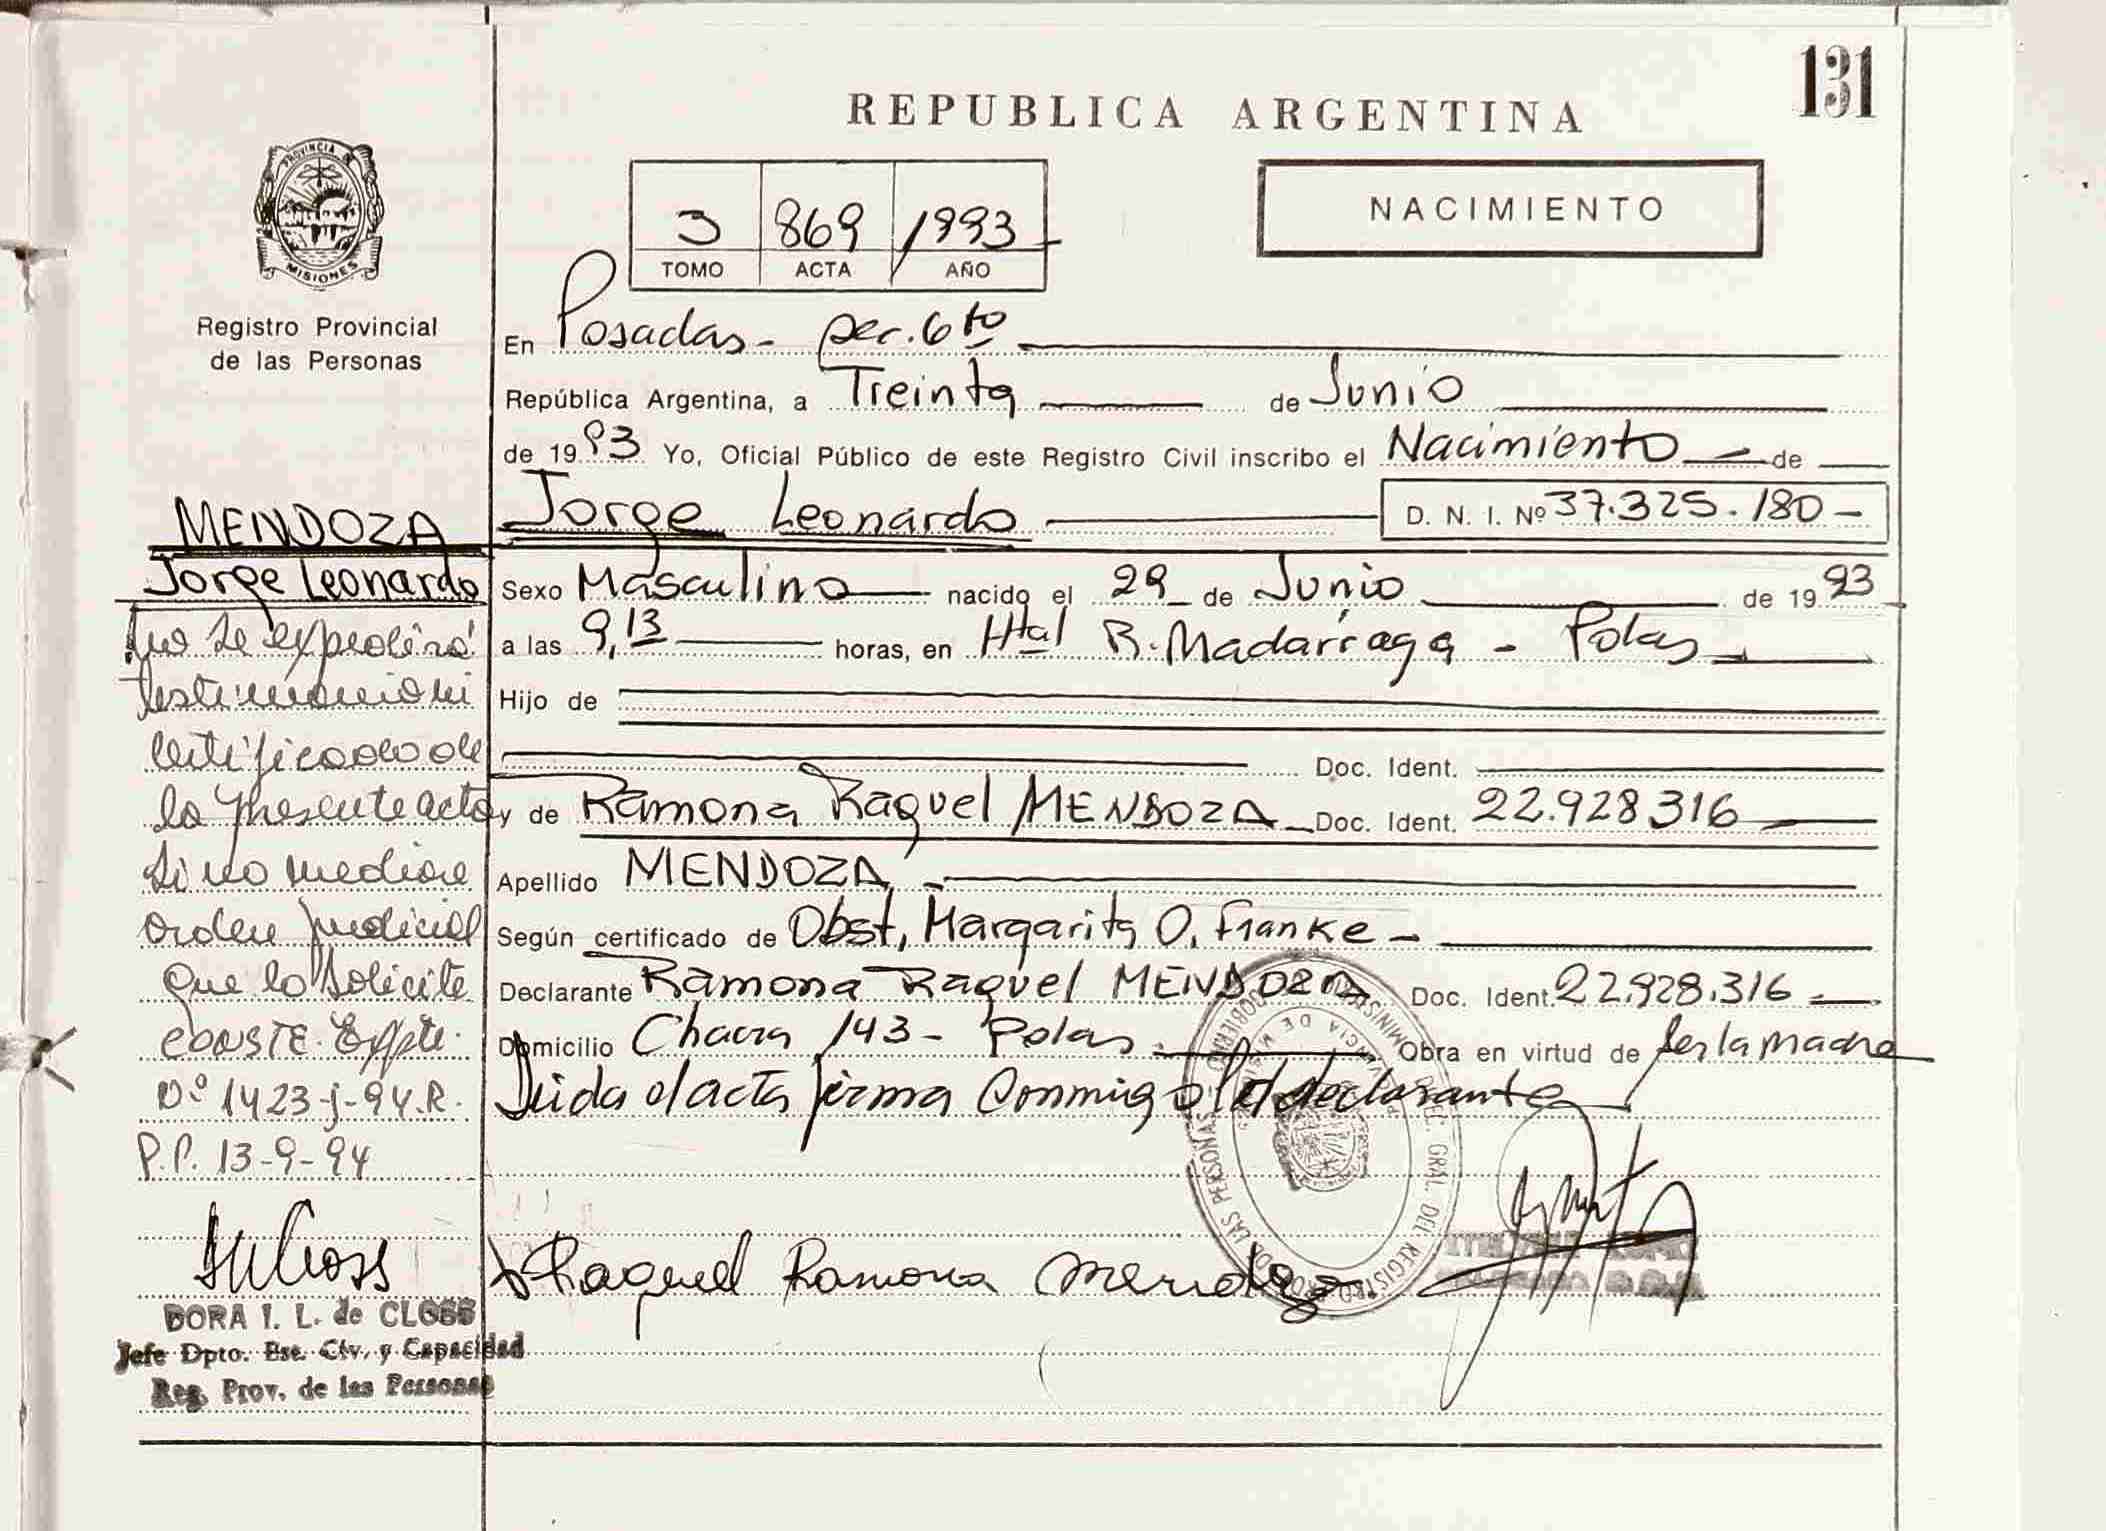 131
REPUBLICA ARGENTINA
NACIMIENTO
3 869 1993
TOMO ACTA AÑO
PROVINCIA DE
MISIONES
Registro Provincial
de las Personas
En Posadas - sec. 6to
República Argentina, a Treinta de Junio
de 1993 Yo, Oficial Público de este Registro Civil inscribo el Nacimiento de
Jorge Leonardo D. N. I. Nº 37.325.180 -
Sexo Masculino nacido el 29 de Junio de 1993
a las 9,13 horas, en Htal R. Madarraga - Pdas
Hijo de
Doc. Ident.
y de Ramona Raquel MENDOZA Doc. Ident. 22.928.316
Apellido MENDOZA
Según certificado de Obst, Margarita O. Franke -
Declarante Ramona Raquel MENDOZA Doc. Ident. 22.928.316
Domicilio Chacra 143 - Pdas. Obra en virtud de ser la madre
Leida el acta firma Conmigo la declarante
Raquel Ramona Mendoza
MENDOZA
Jorge Leonardo
No se expedirá
testimonio ni
certificado de
la presente acta
si no mediare
orden judicial
que lo solicite
CONSTE. Expte.
Nº 1423-J-94.R.
P.P. 13-9-94
DORA I. L. de CLOSS
Jefe Dpto. Est. Civ. y Capacidad
Reg. Prov. de las Personas